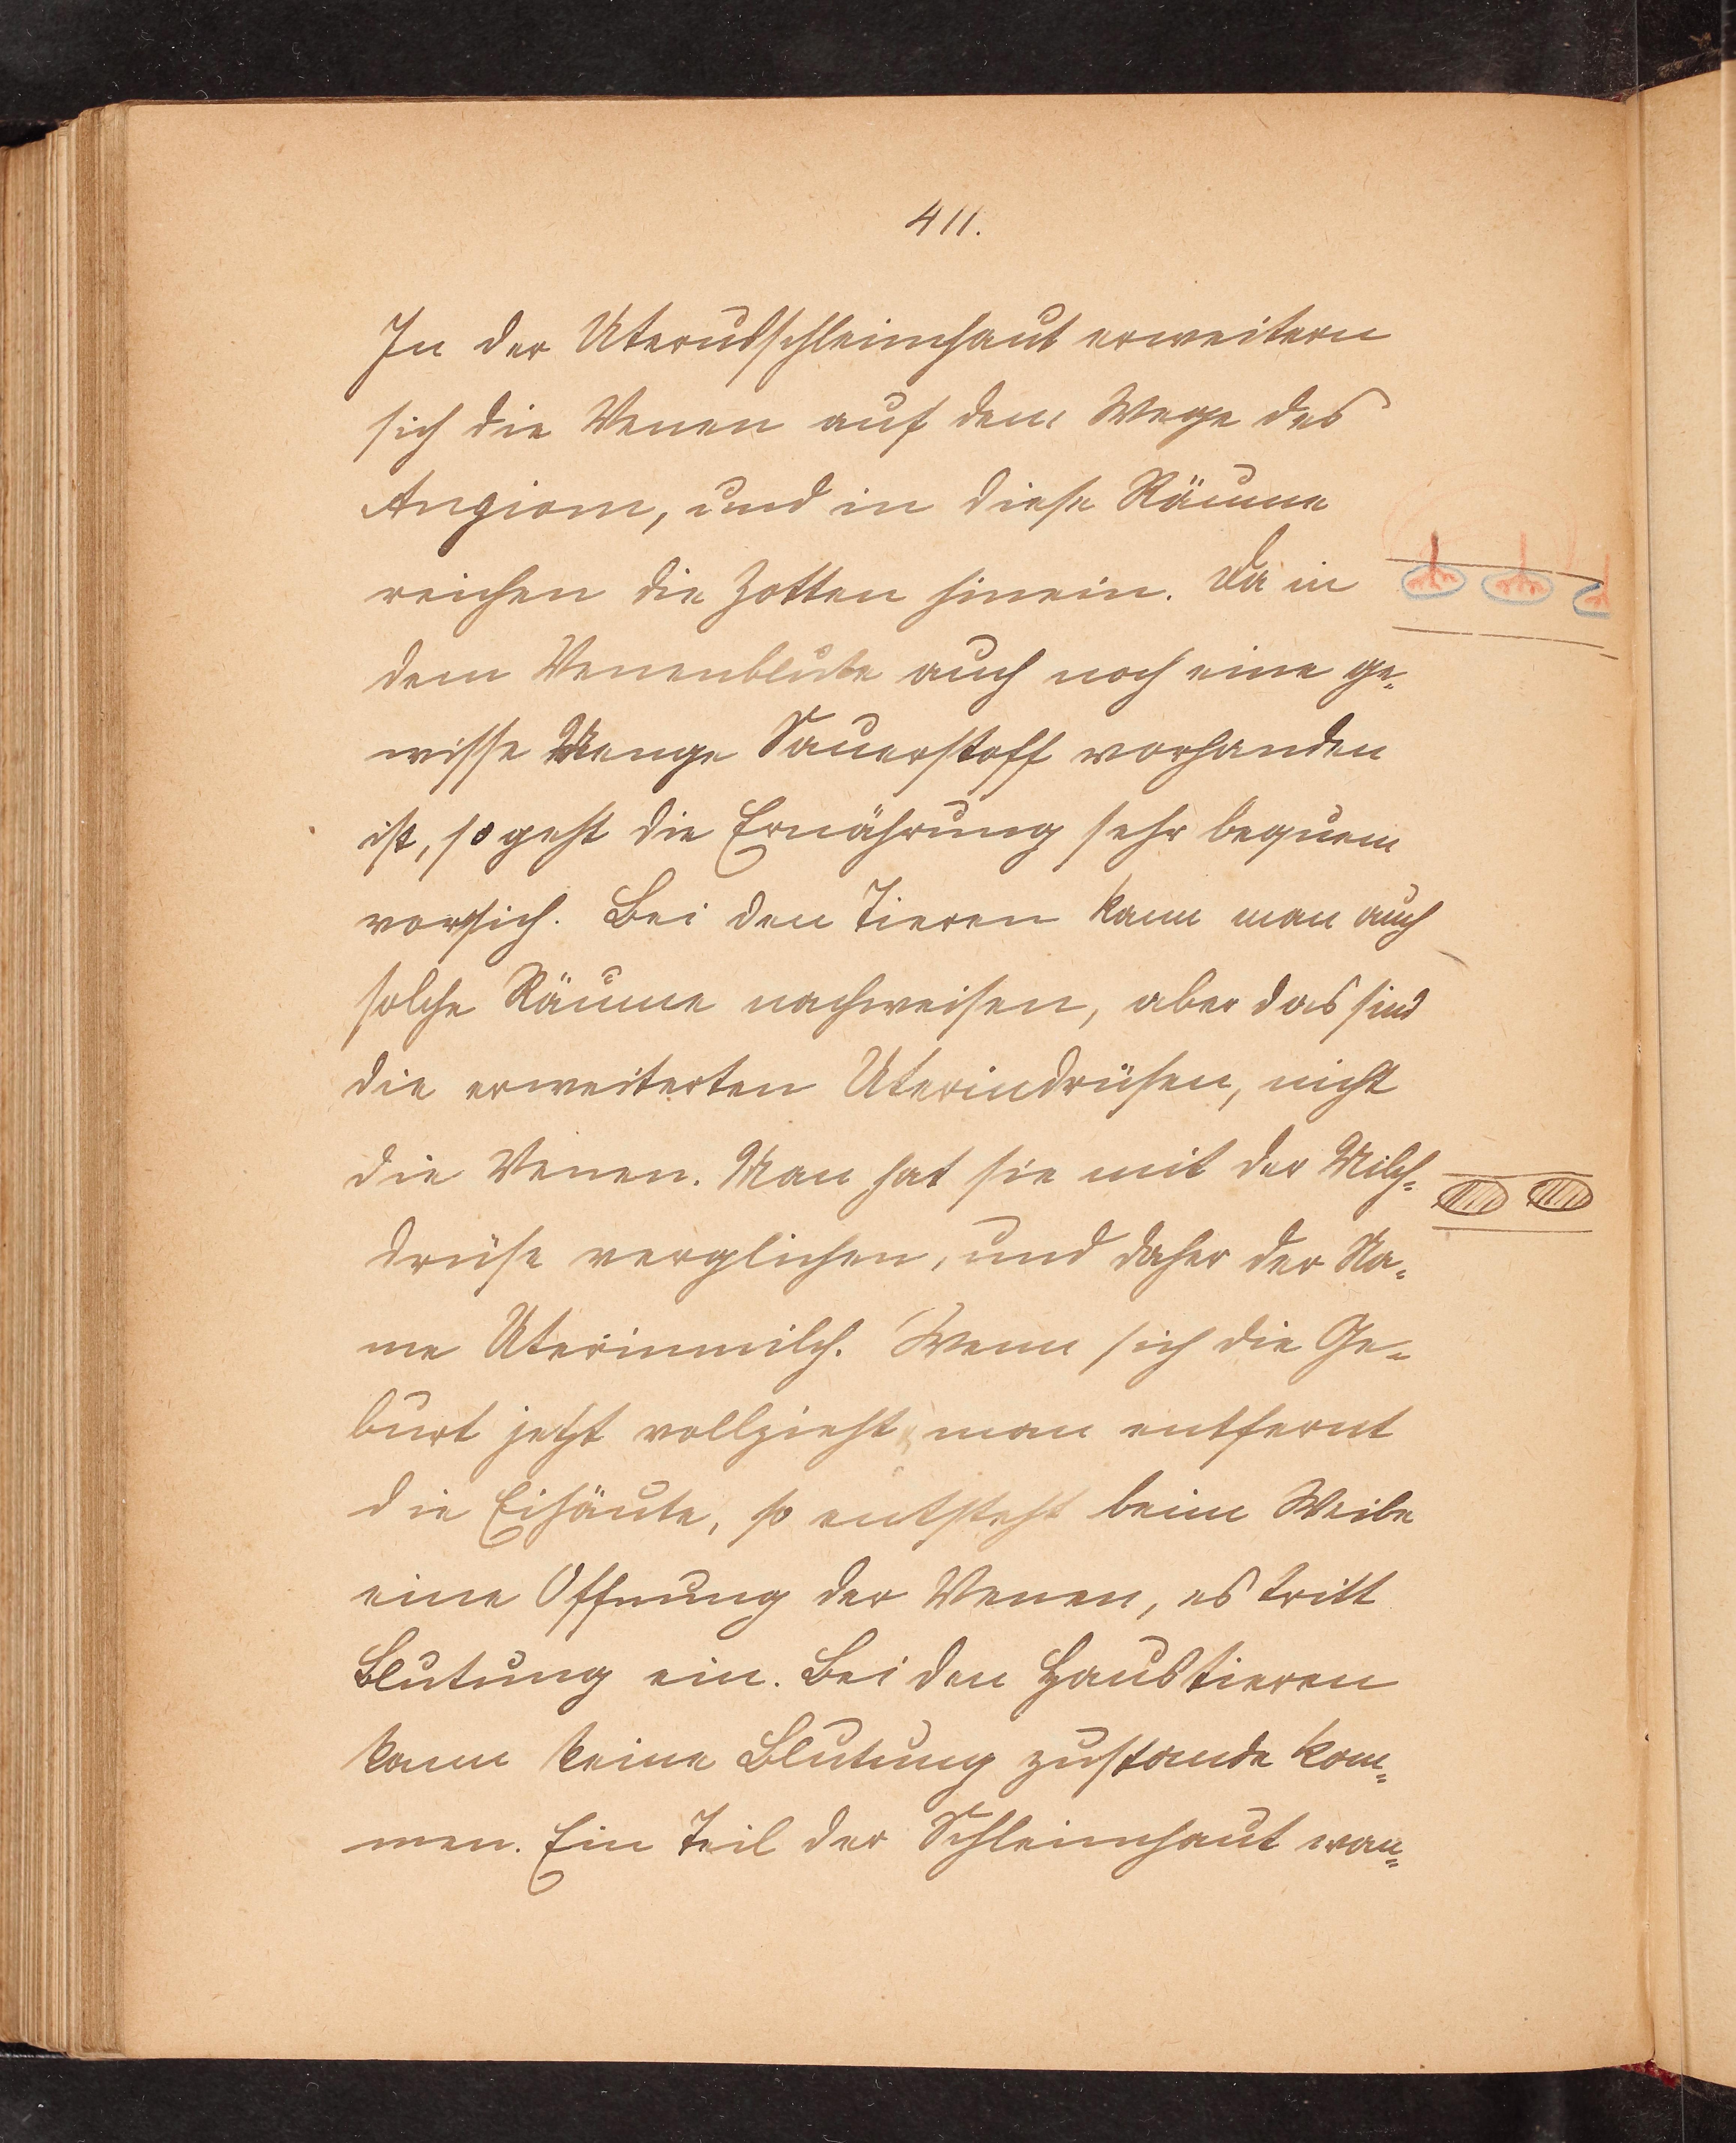 411.
In der Uterusschleimhaut erweitern
sich die Venen auf dem Wege des
Angiom, und in diese Räume
reichen die Zotten hinein. Da in
dem Venenblute auch noch eine ge-
wisse Menge Sauerstoff vorhanden
ist, so geht die Ernährung sehr bequem
vorsich. Bei den Tieren kann man auch
solche Räume nachweisen, aber das sind
die erweiterten Uterindrüsen, nicht
die Venen. Man hat sie mit der Milch-
drüse verglichen, und daher der Na-
me Uterinmilch. Wenn sich die Ge-
burt jetzt vollzieht, man entfernt
die Eihäute, so entsteht beim Weibe
eine Offnung der Venen, es tritt
Blutung ein. Bei den Haustieren
kann keine Blutung zustande kom-
men. Ein Teil der Schleimhaut wan-